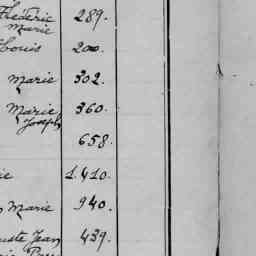 Frédéric 289.
Marie
Louis 200.
Marie 302.
Marie 360.
Joseph
658.
ie 1.410.
Marie 940.
uste Jean 439.